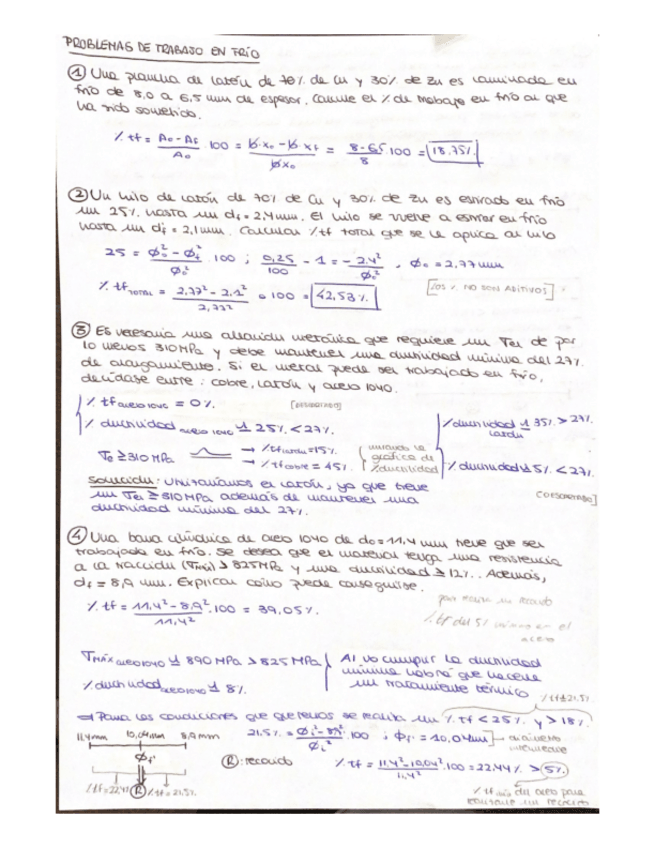 PROBLEMAS DE TRABAJO EN FRÍO
① Una plancha de latón de 70% de Cu y 30% de Zn es laminada en
frío de 8,0 a 6,5 mm de espesor. Calcule el % de trabajo en frío al que
ha sido sometido.
% tf = (A₀ - Af)/A₀ · 100 = (b·x₀ - b·xf)/(b·x₀) = (8 - 6,5)/8 · 100 = 18,75%
② Un hilo de latón de 70% de Cu y 30% de Zn es estirado en frío
un 25% hasta un df = 2,4 mm. El hilo se vuelve a estirar en frío
hasta un df = 2,1 mm. Calcular %tf total que se le aplica al hilo
25 = (ϕ₀² - ϕf²)/ϕ₀² · 100 ; 0,25/100 - 1 = - 2,4²/ϕ₀² , ϕ₀ = 2,77 mm
% tf TOTAL = (2,77² - 2,1²)/2,77² · 100 = 42,53%
[LOS % NO SON ADITIVOS]
③ Es necesaria una aleación metálica que requiere un σel de por
lo menos 310 MPa y debe mantener una ductilidad mínima del 27%
de alargamiento. Si el metal puede ser trabajado en frío,
decídase entre: cobre, latón y acero 1040.
% tf acero 1040 = 0% [DESCARTADO]
% ductilidad acero 1040 ≃ 25% < 27%
% ductilidad latón ≃ 35% > 27%
σe ≥ 310 MPa → % tf latón = 15%
→ % tf cobre = 45%
mirando la gráfica de % ductilidad
% ductilidad ≃ 5% < 27%
[DESCARTADO]
Solución: Utilizaríamos el latón, ya que tiene
un σel ≥ 310 MPa además de mantener una
ductilidad mínima del 27%.
④ Una barra cilíndrica de acero 1040 de d₀ = 11,4 mm tiene que ser
trabajada en frío. Se desea que el material tenga una resistencia
a la tracción (σmáx) > 825 MPa y una ductilidad ≥ 12%. Además,
df = 8,9 mm. Explicar como puede conseguirse.
% tf = (11,4² - 8,9²)/11,4² · 100 = 39,05%
para realizar un recocido
% tf del 5% mínimo en el
acero
σMÁX acero 1040 ≃ 890 MPa > 825 MPa
% ductilidad acero 1040 ≃ 8%
Al no cumplir la ductilidad
mínima habrá que hacerle
un tratamiento térmico
% tf ≃ 21,5%
⇒ Para las condiciones que queremos se realiza un % tf < 25% y > 18%
11,4mm 10,04mm 8,9mm
21,5% = (ϕi² - 8,9²)/ϕi² · 100 ; ϕf' = 10,04 mm] → diámetro
intermedio
ϕf'
Ⓡ: recocido
% tf = (11,4² - 10,04²)/11,4² · 100 = 22,44% > 5%
% tf = 22,4% Ⓡ % tf = 21,5%
% tf mín del acero para
realizarle un recocido